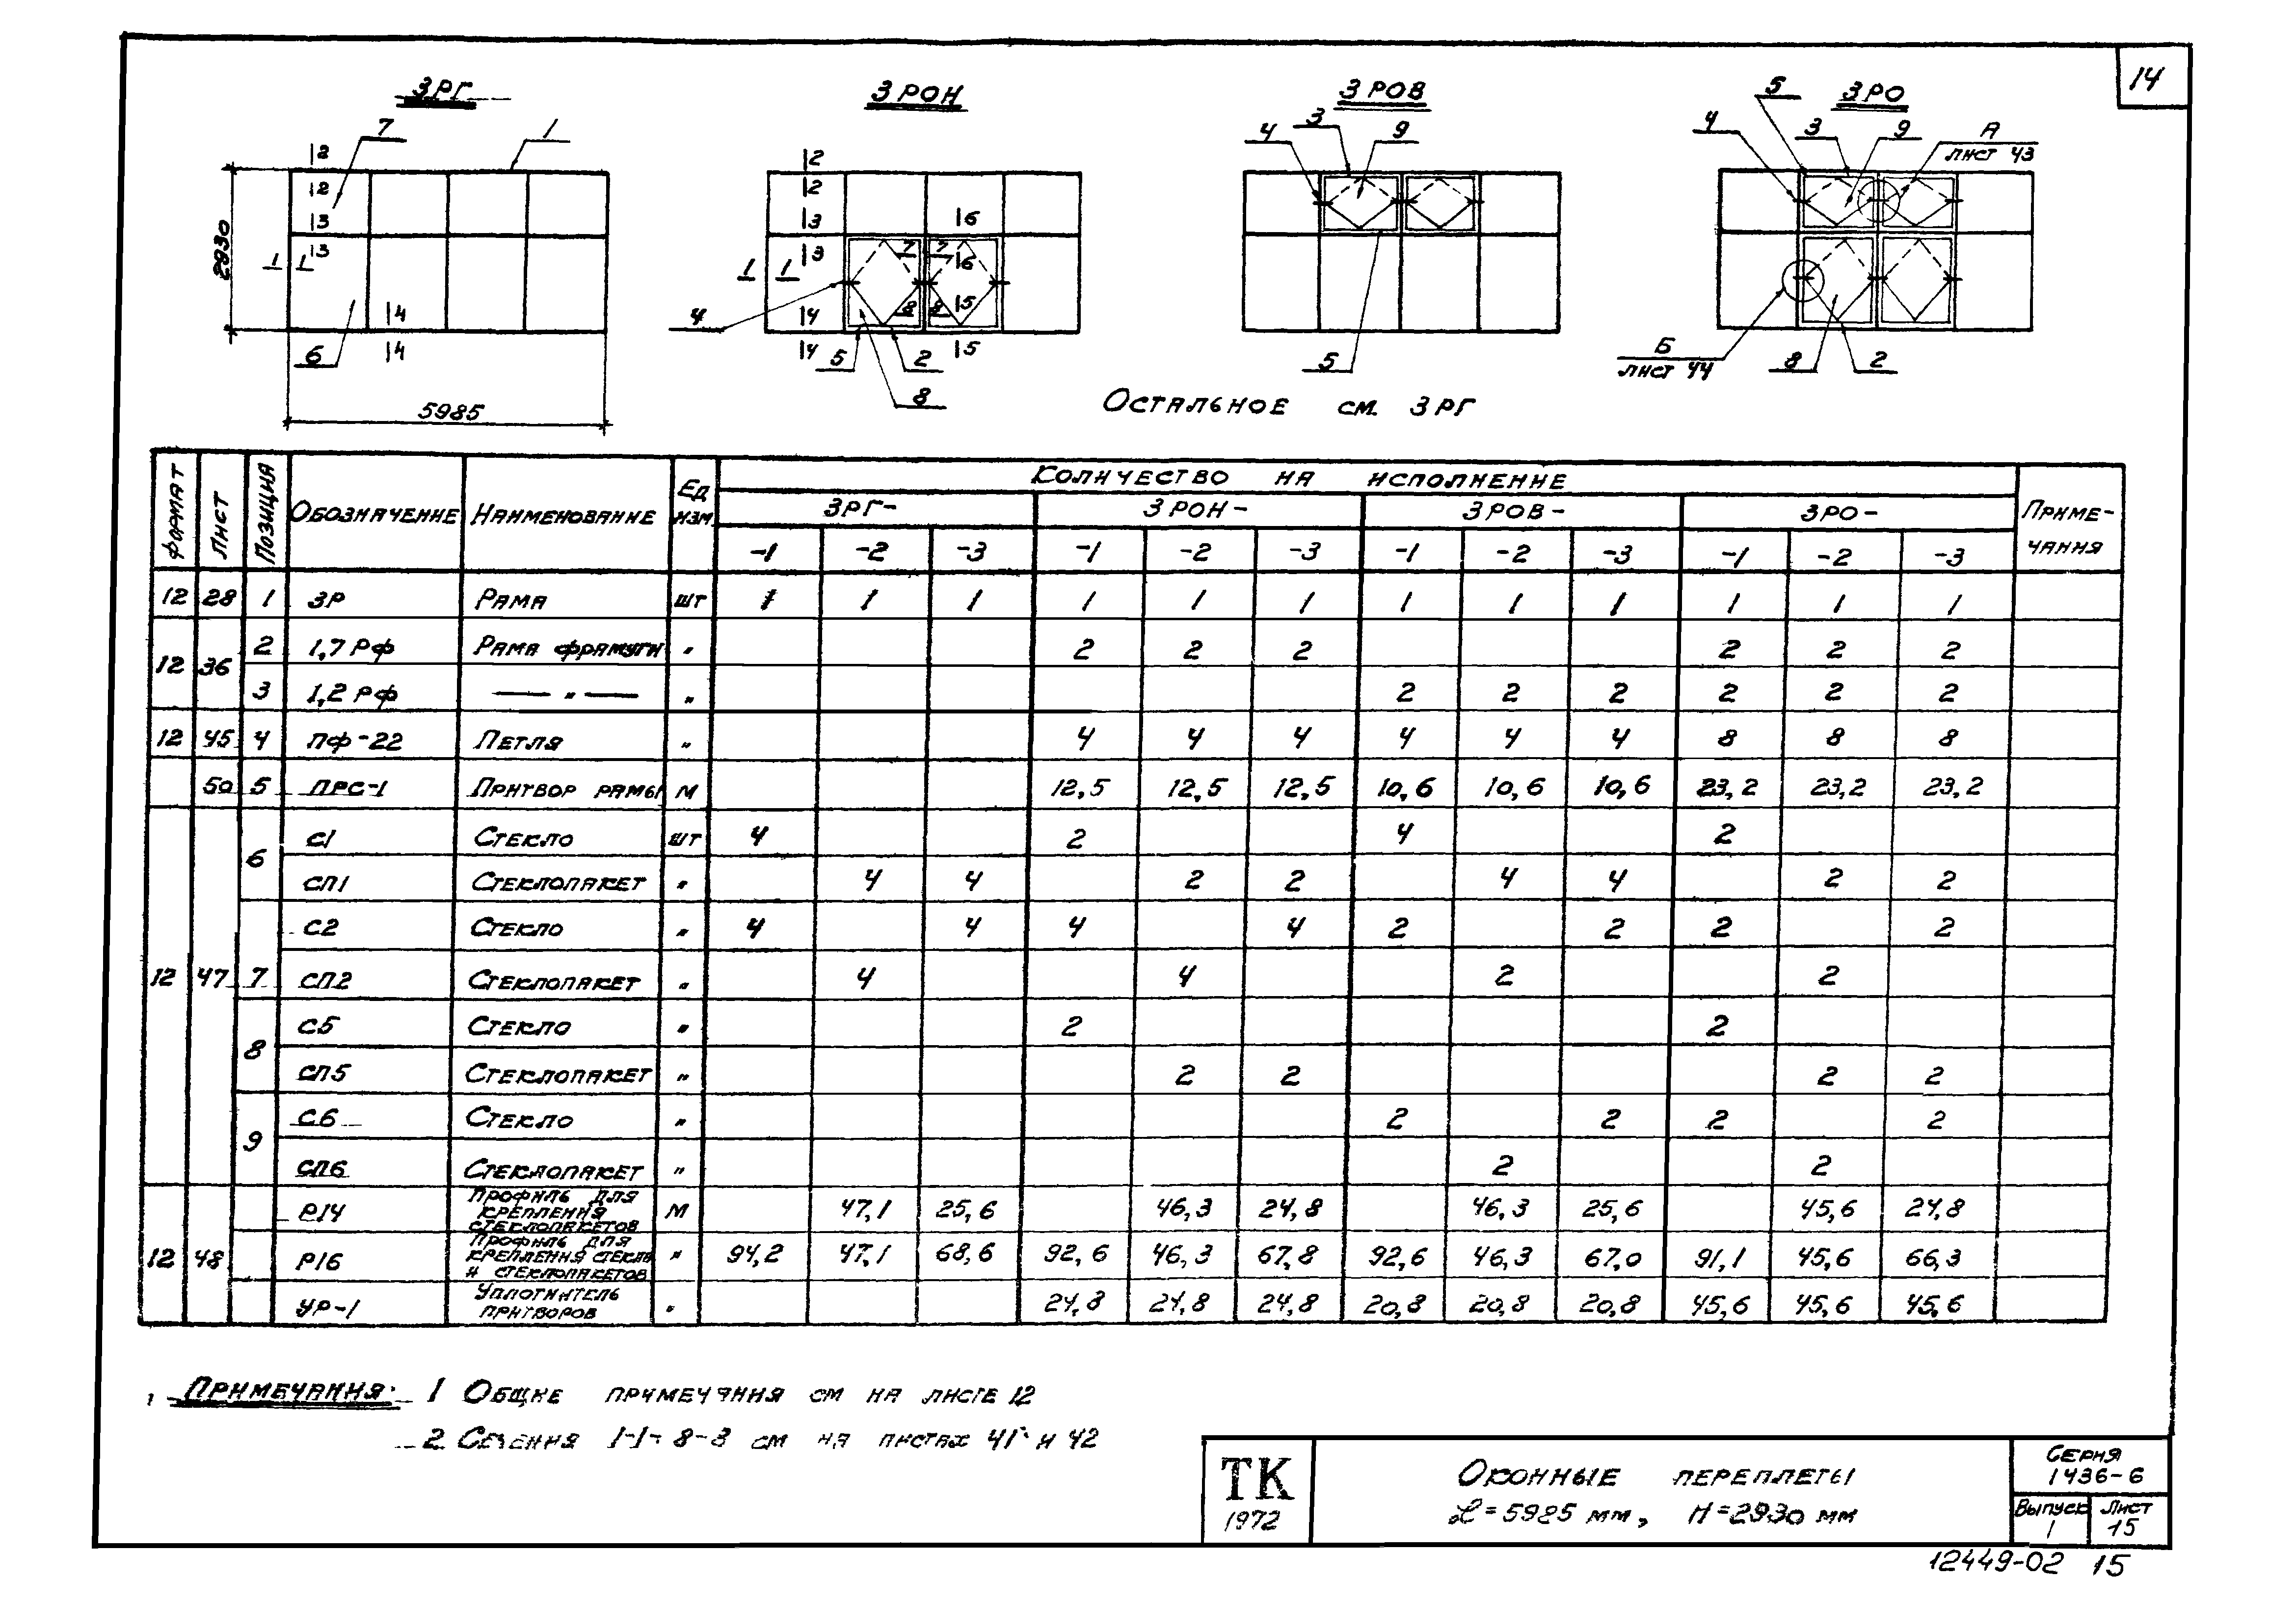 14
3РГ
3РОН
3РОВ
3РО
7 1
2
2
3
3
1 1
4
4
6
2930
5985
2
2
3
3
1 1
4
4
6
6
7 7
8 8
5
5
4
5 2
8
4 3 9
5
5
4 3 9 А
лист 43
Б
лист 44
8 2
Остальное см. 3РГ
Формат Лист Позиция Обозначение Наименование Ед. изм. Количество на исполнение Примечания
3РГ- 3РОН- 3РОВ- 3РО-
-1 -2 -3 -1 -2 -3 -1 -2 -3 -1 -2 -3
12 28 1 3Р Рама шт 1 1 1 1 1 1 1 1 1 1 1 1
12 36 2 1,7РФ Рама фрамуги " 2 2 2 2 2 2
3 1,2РФ — " — " 2 2 2 2 2 2
12 45 4 ПФ-22 Петля " 4 4 4 4 4 4 8 8 8
50 5 ПРС-1 Притвор рамы м 12,5 12,5 12,5 10,6 10,6 10,6 23,2 23,2 23,2
12 47 6 С1 Стекло шт 4 2 4 2
СП1 Стеклопакет " 4 4 2 2 4 4 2 2
7 С2 Стекло " 4 4 4 4 2 2 2 2
СП2 Стеклопакет " 4 4 2 2
8 С5 Стекло " 2 2
СП5 Стеклопакет " 2 2 2 2
9 С6 Стекло " 2 2 2 2
СП6 Стеклопакет " 2 2
12 48 Р14 Профиль для крепления стеклопакетов м 47,1 25,6 46,3 24,8 46,3 25,6 45,6 24,8
Р16 Профиль для крепления стекла и стеклопакетов " 94,2 47,1 68,6 92,6 46,3 67,8 92,6 46,3 67,0 91,1 45,6 66,3
УР-1 Уплотнитель притворов " 24,8 24,8 24,8 20,8 20,8 20,8 45,6 45,6 45,6
Примечания: 1 Общие примечания см на листе 12
2. Сечения 1-1÷8-8 см на листах 41 и 42
ТК
1972
Оконные переплеты
L=5985 мм, H=2930 мм
Серия
1436-6
Выпуск Лист
1 15
12449-02 15